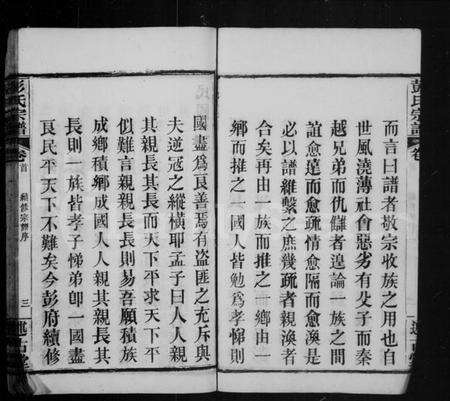 彭氏宗譜
卷
而言曰譜者敬宗收族之用也自
世風澆薄社會惡劣有父子而秦
越兄弟而仇讎者遑論一族之間
誼愈遠而愈疏情愈隔而愈渙是
必以譜維繫之庶幾疏者親渙者
合矣再由一族而推之一鄉由一
鄉而推之一國人皆勉為孝悌則
國盡爲良善焉有盜匪之充斥與
夫逆冠之縱横耶孟子曰人人親
其親長其長而天下平求天下平
似難言親親長長則易吾願積族
成鄉積鄉成國人人親其親長其
長則一族皆孝子悌弟即一國盡
良民平天下不難矣今彭府續修
彭氏宗譜
卷首
續修宗譜序
三
述古堂